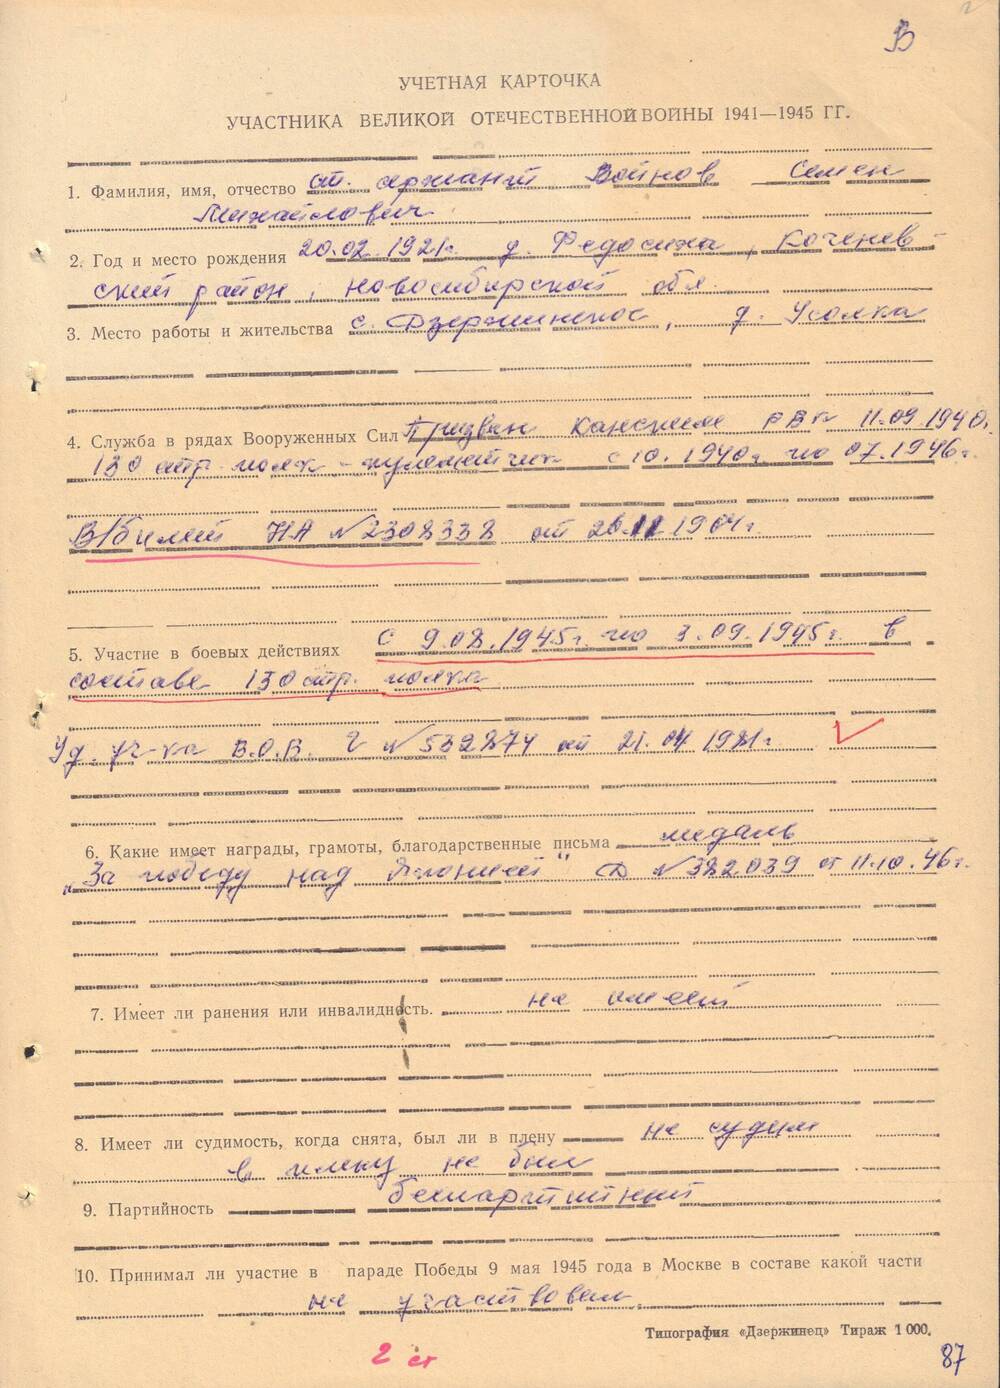 В
УЧЕТНАЯ КАРТОЧКА
УЧАСТНИКА ВЕЛИКОЙ ОТЕЧЕСТВЕННОЙ ВОЙНЫ 1941—1945 ГГ.
1. Фамилия, имя, отчество ст. сержант Войнов Семен
Михайлович
2. Год и место рождения 20.02.1921г. д. Федосиха, Коченев-
ский район, Новосибирской обл.
3. Место работы и жительства с. Дзержинское, д. Усолка
4. Служба в рядах Вооруженных Сил Призван Канским РВК 11.09.1940г.
130 стр. полк - пулеметчик с 10.1940г. по 07.1946г.
В/билет НА №2308338 от 20.11.1964г.
5. Участие в боевых действиях с 9.08.1945г. по 3.09.1945г. в
составе 130 стр. полка
Уд. уч-ка В.О.В. Г №532874 от 21.04.1981г.
6. Какие имеет награды, грамоты, благодарственные письма медаль
„За победу над Японией" Д №382039 от 11.10.46г.
7. Имеет ли ранения или инвалидность. не имеет
8. Имеет ли судимость, когда снята, был ли в плену не судим
в плену не был
9. Партийность беспартийный
10. Принимал ли участие в параде Победы 9 мая 1945 года в Москве в составе какой части
не участвовал
Типография «Дзержинец» Тираж 1 000.
2 ст
87